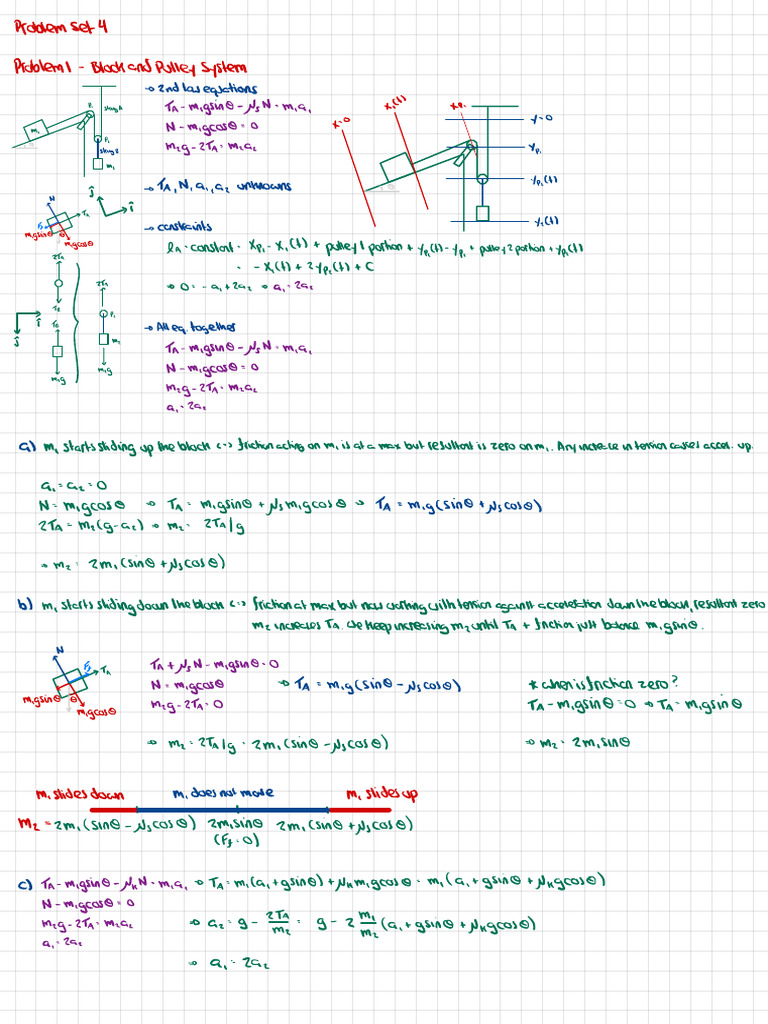 Problem Set 4
Problem 1 - Block and Pulley System
→ 2nd law equations
T_A - m₁gsinθ - μₛN = m₁a₁
N - m₁gcosθ = 0
m₂g - 2T_A = m₂a₂
→ T_A, N, a₁, a₂ unknowns
→ constraints
l_A = constant = x_P₁ - x₁(t) + pulley 1 portion + y_P₂(t) - y_P₁ + pulley 2 portion + y_P₂(t)
= -x₁(t) + 2y_P₂(t) + C
⇒ 0 = -a₁ + 2a₂ ⇒ a₁ = 2a₂
→ All eq. together
T_A - m₁gsinθ - μₛN = m₁a₁
N - m₁gcosθ = 0
m₂g - 2T_A = m₂a₂
a₁ = 2a₂
P₁
string A
m₁
P₂
string B
m₂
x=0
x₁(t)
x_P₁
y=0
y_P₁
y_P₂(t)
y₂(t)
N
T_A
m₁gsinθ
m₁gcosθ
ĵ
î
2T_A
T_B
T_B
2T_A
P₂
m₂
î
ĵ
a) m₁ starts sliding up the block <-> friction acting on m₁ is at a max but resultant is zero on m₁. Any increase in tension causes accel. up.
a₁ = a₂ = 0
N = m₁gcosθ ⇒ T_A = m₁gsinθ + μₛm₁gcosθ ⇒ T_A = m₁g(sinθ + μₛcosθ)
2T_A = m₂(g-a₂) ⇒ m₂ = 2T_A/g
⇒ m₂ = 2m₁(sinθ + μₛcosθ)
b) m₁ starts sliding down the block <-> friction at max but now working with tension against acceleration down the block, resultant zero
m₂ increases T_A. We keep increasing m₂ until T_A + friction just balance m₁gsinθ.
N
T_A
m₁gsinθ
θ
m₁gcosθ
T_A + μₛN - m₁gsinθ = 0
N = m₁gcosθ ⇒ T_A = m₁g(sinθ - μₛcosθ)
m₂g - 2T_A = 0
⇒ m₂ = 2T_A/g = 2m₁(sinθ - μₛcosθ)
* when is friction zero?
T_A - m₁gsinθ = 0 ⇒ T_A = m₁gsinθ
⇒ m₂ = 2m₁sinθ
m₁ slides down m₁ does not move m₁ slides up
m₂ = 2m₁(sinθ - μₛcosθ) 2m₁sinθ 2m₁(sinθ + μₛcosθ)
(F_f = 0)
c) T_A - m₁gsinθ - μ_kN = m₁a₁ ⇒ T_A = m₁(a₁ + gsinθ) + μ_k m₁gcosθ = m₁(a₁ + gsinθ + μ_k gcosθ)
N - m₁gcosθ = 0
m₂g - 2T_A = m₂a₂ ⇒ a₂ = g - 2T_A/m₂ = g - 2 m₁/m₂ (a₁ + gsinθ + μ_k gcosθ)
a₁ = 2a₂
⇒ a₁ = 2a₂